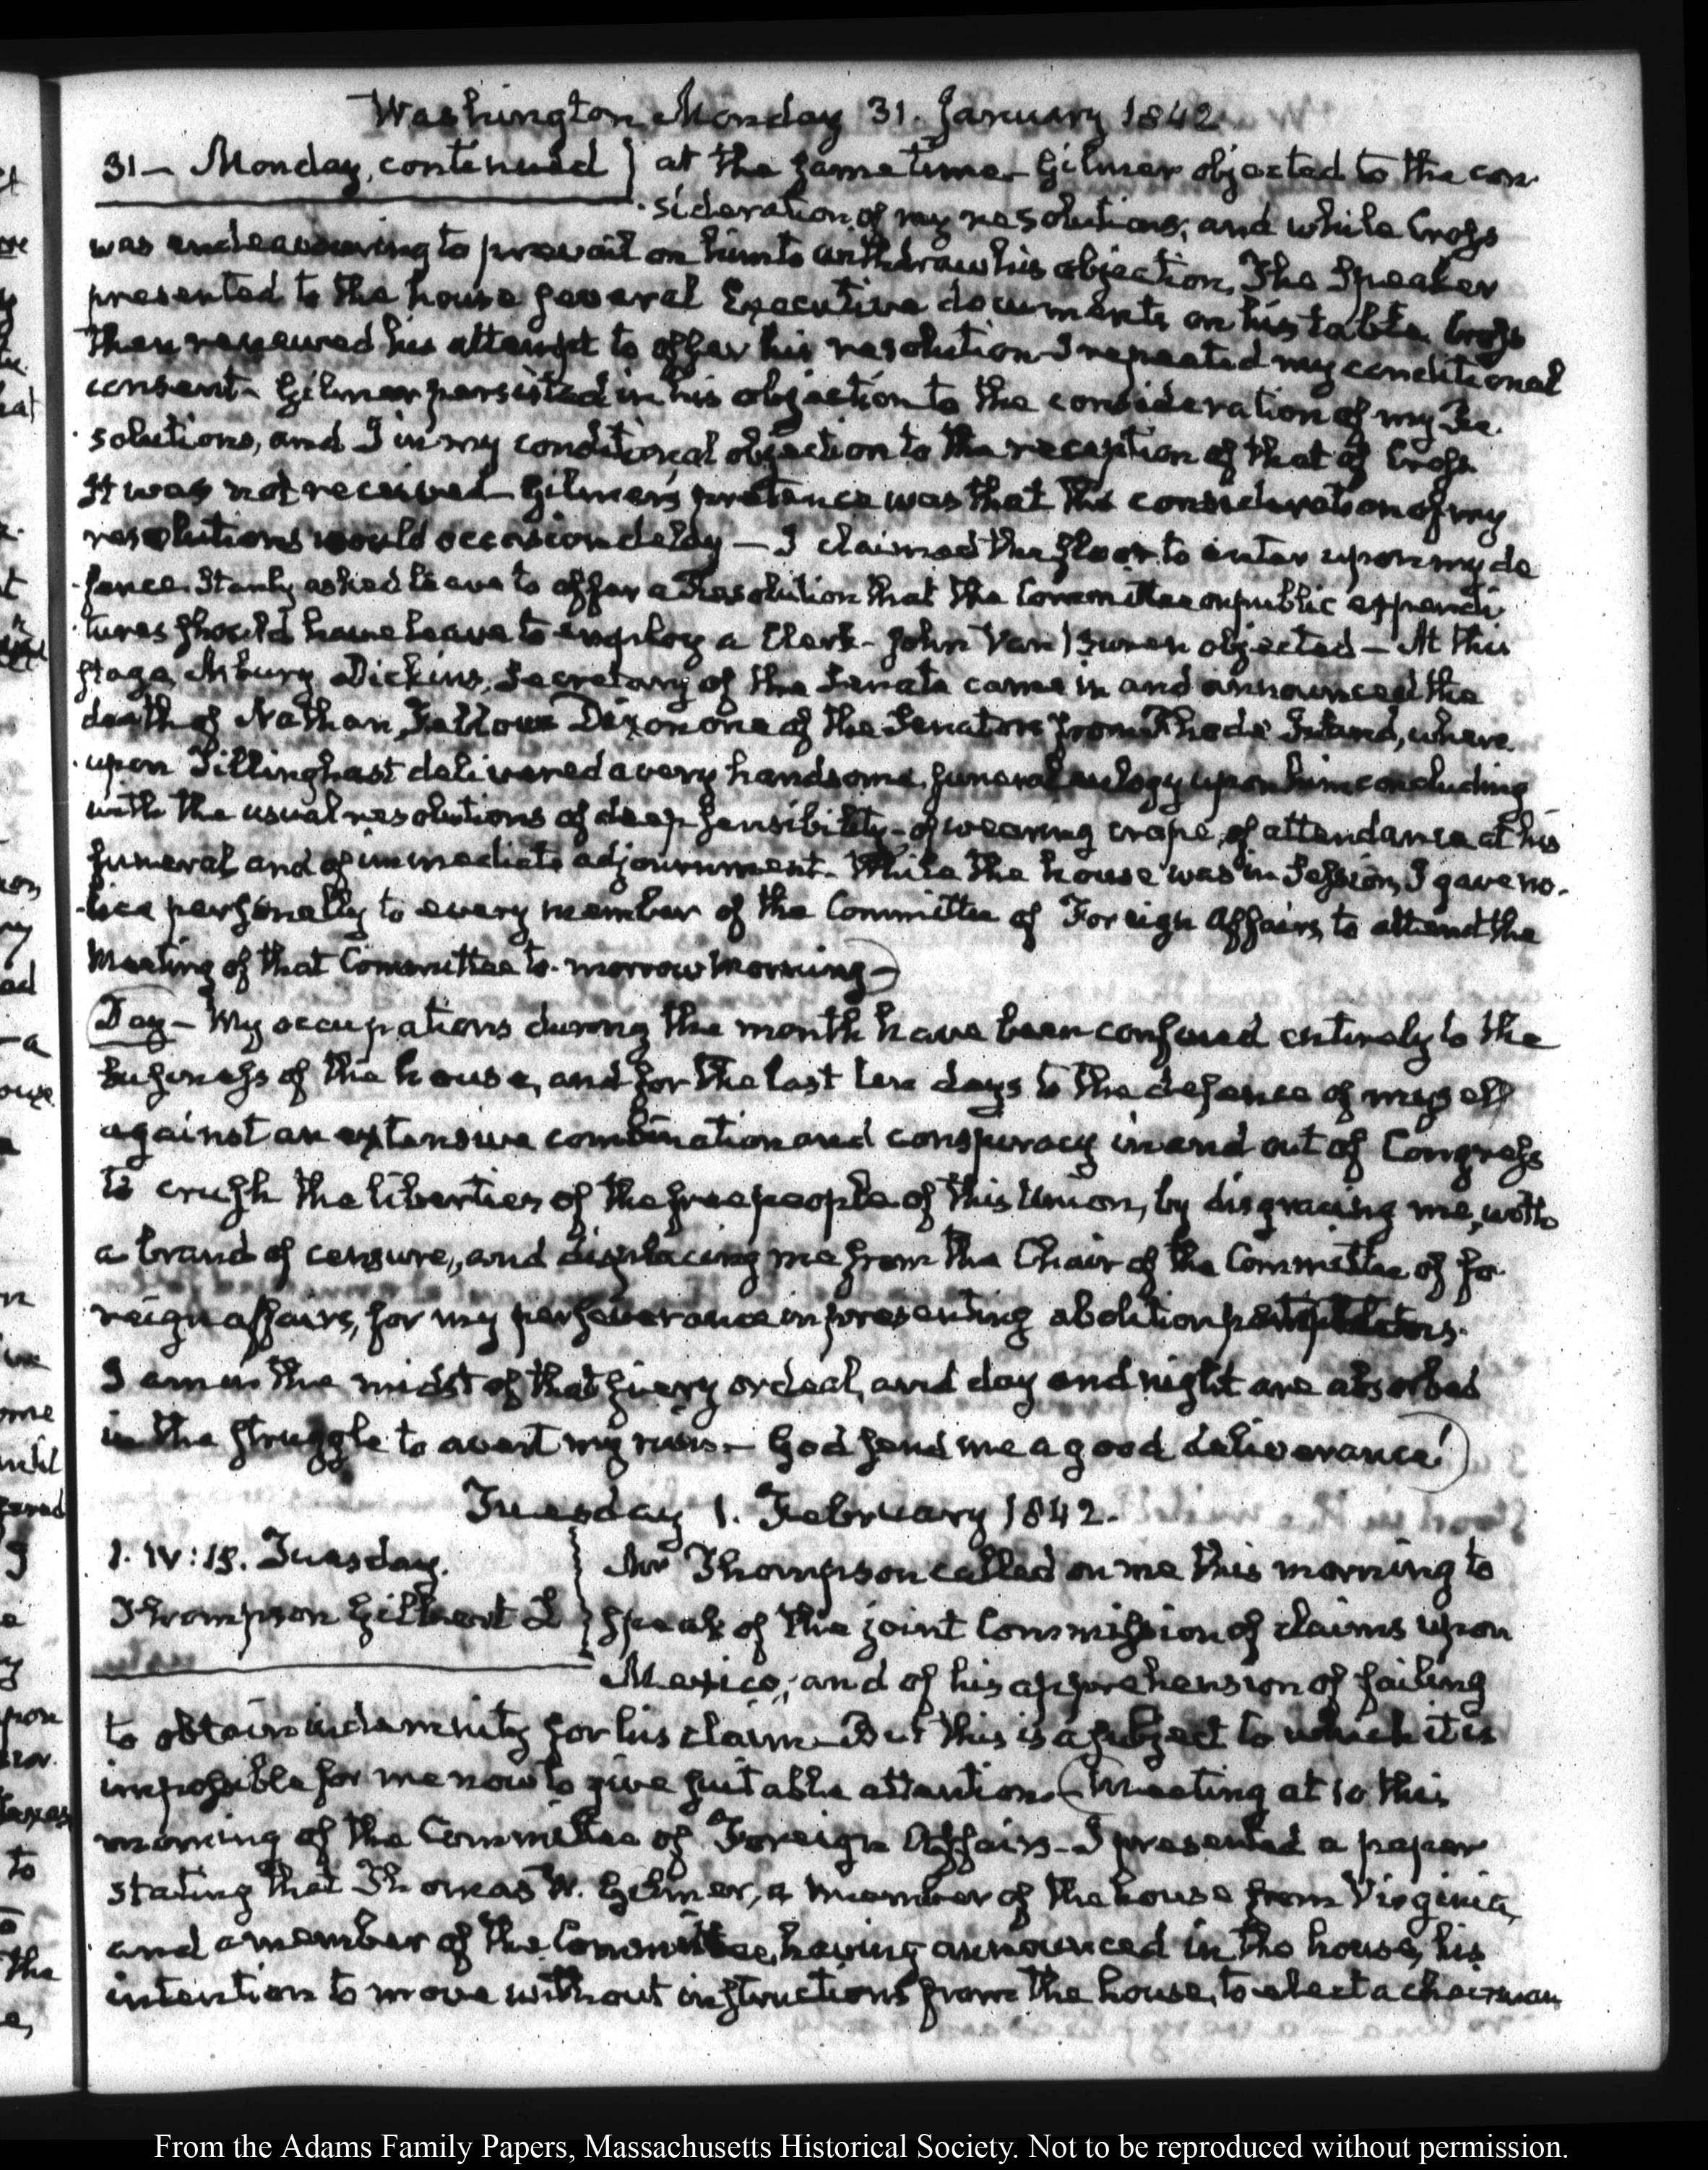 Washington Monday 31. January 1842
31— Monday, continued } at the same time— Gilmer objected to the con-
-sideration of my resolutions; and while Cross
was endeavouring to prevail on him to withdraw his objection, The Speaker
presented to the house several Executive documents on his table. Cross
then renewed his attempt to offer his resolution— I repeated my conditional
consent— Gilmer persisted in his objection to the consideration of my Re-
-solutions, and I in my conditional objection to the reception of that of Cross.
It was not received— Gilmer's pretence was that the consideration of my
resolutions would occasion delay— I claimed the floor to enter upon my de
-fence. Stanly asked leave to offer a Resolution that the Committee on public expendi
-tures should have leave to employ a Clerk— John Van Buren objected— At this
stage, Asbury Dickins, Secretary of the Senate came in and announced the
death of Nathan Fellows Dixon one of the Senators from Rhode Island, where
-upon Tillinghast delivered a very handsome funeral eulogy upon him concluding
with the usual resolutions of deep sensibility— of wearing crape, of attendance at his
funeral and of immediate adjournment. While the house was in Session, I gave no-
-tice personally to every member of the Committee of Foreign Affairs, to attend the
Meeting of that Committee to-morrow Morning—)
(Day— My occupations during the month have been confined entirely to the
business of the house, and for the last ten days to the defence of myself
against an extensive combination and conspiracy in and out of Congress
to crush the liberties of the free people of this Union, by disgracing me, with
a brand of censure, and displacing me from the Chair of the Committee of fo-
reign affairs, for my perseverance in presenting abolition petitions.
I am in the midst of that fiery ordeal, and day and night are absorbed
in the struggle to avert my ruin— God send me a good deliverance!)
Tuesday 1. February 1842.
1. IV:15. Tuesday. } Mr Thompson called on me this morning to
Thompson Gilbert L } speak of the joint Commission of claims upon
Mexico; and of his apprehension of failing
to obtain indemnity for his claim— But this is a subject to which it is
impossible for me now to give suitable attention— (Meeting at 10 this
morning of the Committee of Foreign Affairs— I presented a paper
stating that Thomas W. Gilmer, a member of the house from Virginia,
and a member of the Committee, having announced in the house, his
intention to move without instructions from the house, to elect a chairman
From the Adams Family Papers, Massachusetts Historical Society. Not to be reproduced without permission.